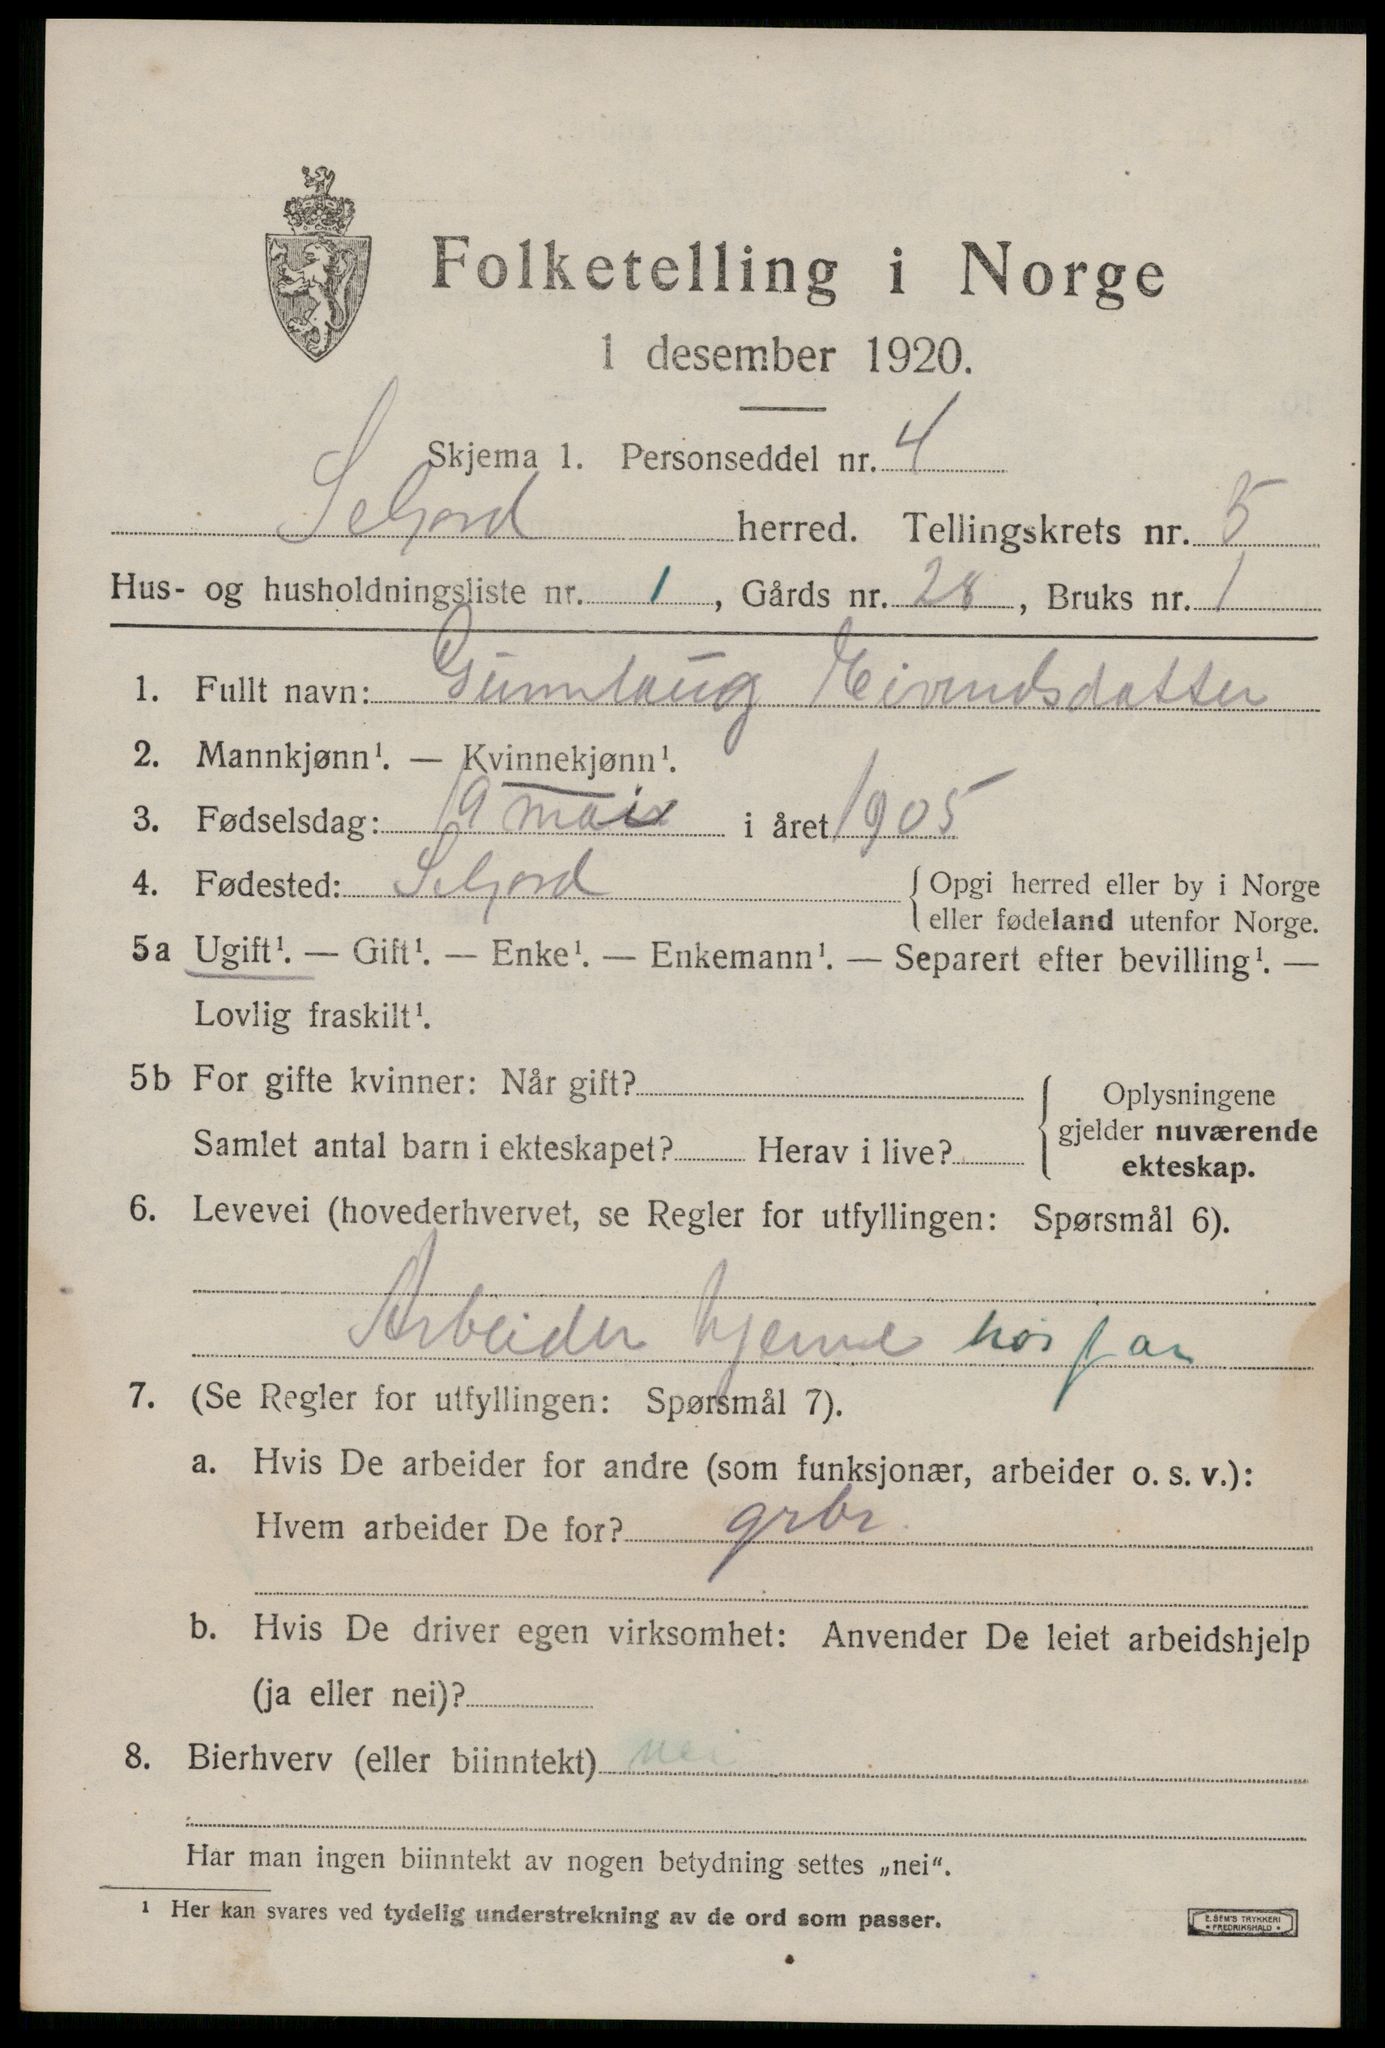 Folketelling i Norge
1 desember 1920.
Skjema 1. Personseddel nr. 4
Seljord herred. Tellingskrets nr. 5
Hus- og husholdningsliste nr. 1, Gårds nr. 28, Bruks nr. 1
1. Fullt navn: Gunnlaug Eivindsdatter
2. Mannkjønn¹. — Kvinnekjønn¹.
3. Fødselsdag: 19 mai i året 1905
4. Fødested: Seljord { Opgi herred eller by i Norge
eller fødeland utenfor Norge.
5a Ugift¹. — Gift¹. — Enke¹. — Enkemann¹. — Separert efter bevilling¹. —
Lovlig fraskilt¹.
5b For gifte kvinner: Når gift? { Oplysningene
gjelder nuværende
Samlet antal barn i ekteskapet? Herav i live?
ekteskap.
6. Levevei (hovederhvervet, se Regler for utfyllingen: Spørsmål 6).
Arbeider hjeme hos far
7. (Se Regler for utfyllingen: Spørsmål 7).
a. Hvis De arbeider for andre (som funksjonær, arbeider o. s. v.):
Hvem arbeider De for? grbr.
b. Hvis De driver egen virksomhet: Anvender De leiet arbeidshjelp
(ja eller nei)?
8. Bierhverv (eller biinntekt) nei
Har man ingen biinntekt av nogen betydning settes „nei“.
¹ Her kan svares ved tydelig understrekning av de ord som passer.
E. SEM'S TRYKKERI
* FREDRIKSHALD *